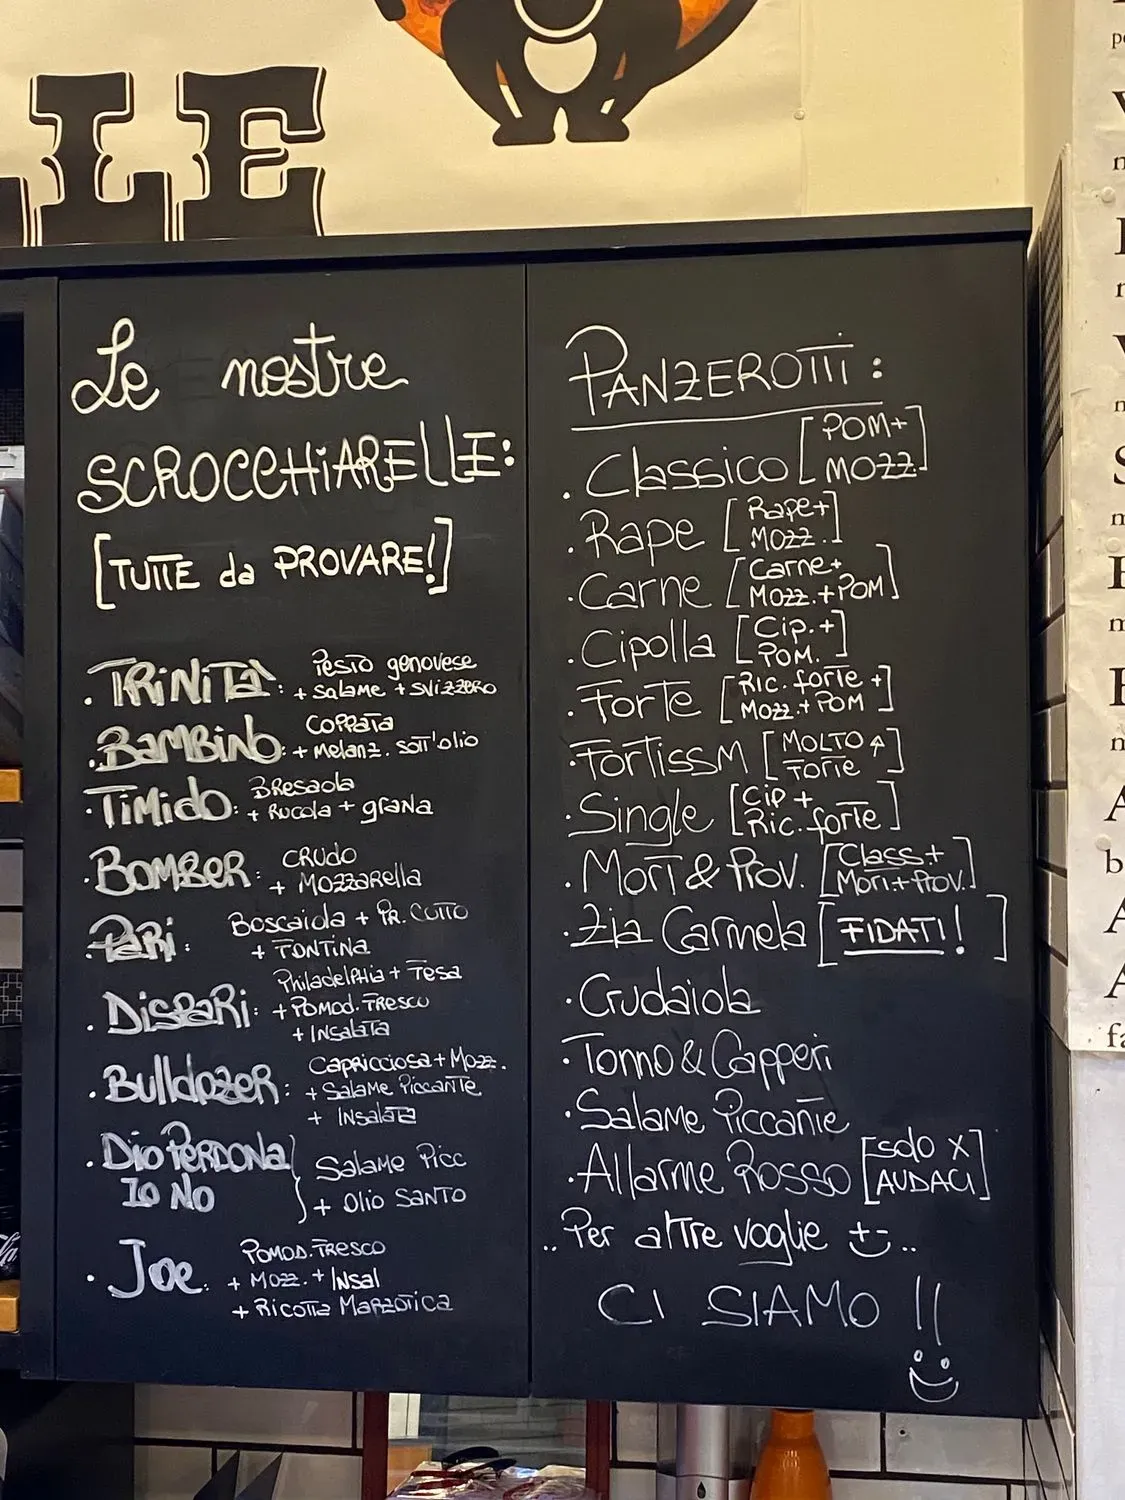 LE
Le nostre
SCROCCHiARELLE:
[TUTTE da PROVARE!]
. TRiNiTà: Pesto genovese
+ salame + svizzero
. BAMBiNO: Coppata
+ Melanz. sott'olio
. TiMido: Bresaola
+ Rucola + grana
. BOMBER: CRUDO
+ MOZZARella
. PaRi: Boscaiola + PR. COTTO
+ FONTINA
. DisPaRi: Philadelphia + Tesa
+ POMOD. FRESCO
+ INSALATA
. BullDOZER: Capricciosa + Mozz.
+ Salame Piccante
+ INSALATA
. Dio PERDONA
IO NO } Salame Picc
+ Olio SANTO
. Joe: POMOD. FRESCO
+ MOZZ. + INSal
+ RICOTTA MARZOTICA
PANZEROTTI:
. Classico [POM+
MOZZ]
. Rape [Rape+
MOZZ.]
. Carne [Carne+
MOZZ.+POM]
. Cipolla [Cip.+
POM.]
. Forte [Ric. forte +
MOZZ.+POM]
. FORTissM [MOLTO ↑
Forte]
. Single [Cip +
Ric. forte]
. MORT & PROV. [Class.+
Mort.+Prov.]
. Zia Carmela [FIDATI!]
. Crudaiola
. Tonno & Capperi
. Salame Piccante
. Allarme Rosso [solo X
AUDACI]
.. Per altre voglie ..
CI SIAMO !!